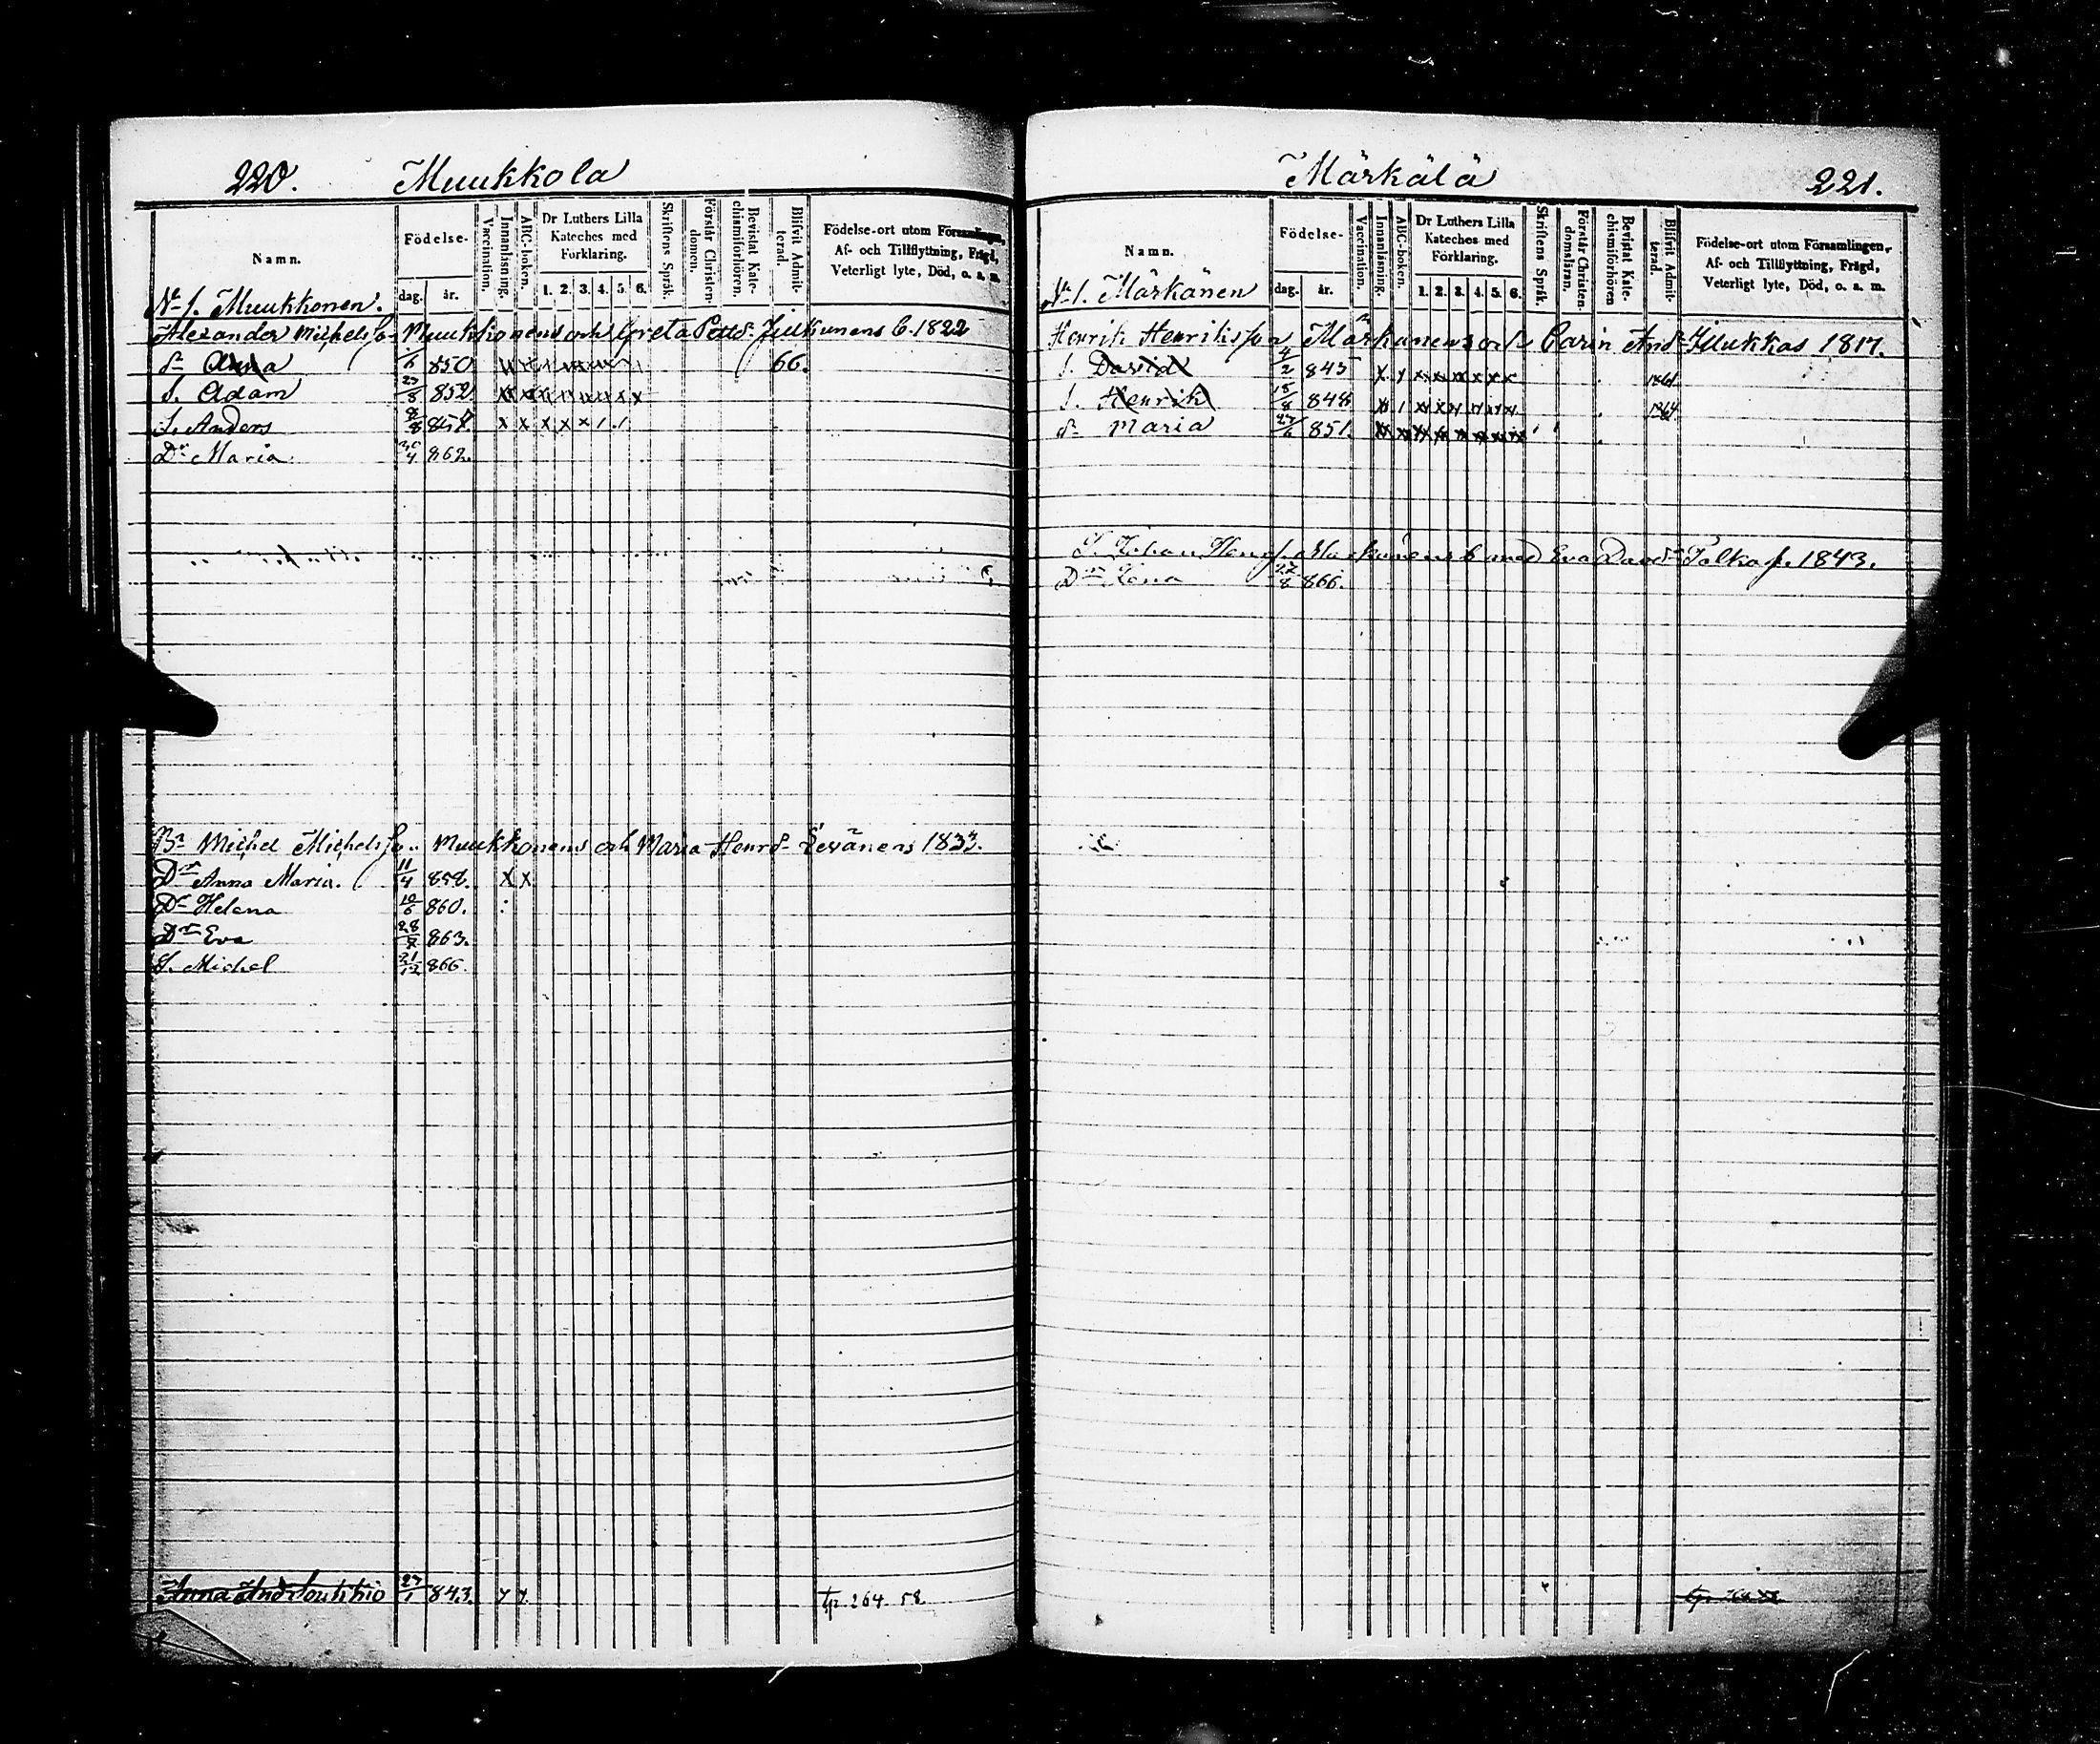 220. Muukkola
Namn.
Födelse-
dag. år.
Vaccination.
Innanläsning.
ABC-boken.
Dr Luthers Lilla
Kateches med
Förklaring.
1. 2. 3. 4. 5. 6.
Skriftens Språk.
Förstår Christen-
domen.
Bevistat Kate-
chismiförhören.
Blifvit Admit-
terad.
Födelse-ort utom Församlingen,
Af- och Tillflyttning, Frägd,
Veterligt lyte, Död, o. s. m.
No 1. Muukkonen.
Alexander Michelss. Muukkonens och Greta Pettsdr 1822
dr Anna 6 850 66.
S. Adam 23/8 852
S. Anders 8/8 857
Dr Maria 4 862.
Br Michel Michelss. Muukkonens och Maria Henrdr 1833.
Dr Anna Maria. 11/4 858. X X
Dr Helena 10/6 860.
Dr Eva 28 863.
S. Michel 21/12 866.
Anna 27/1 843.
tp. 264. 58.
Märkälä 221.
Namn.
Födelse-
dag. år.
Vaccination.
Innanläsning.
ABC-boken.
Dr Luthers Lilla
Kateches med
Förklaring.
1. 2. 3. 4. 5. 6.
Skriftens Språk.
Förstår Christen-
domsläran.
Bevistat Kate-
chismiförhören
Blifvit Admit-
terad.
Födelse-ort utom Församlingen,
Af- och Tillflyttning, Frägd,
Veterligt lyte, Död, o. a. m.
No 1. Märkänen
Henrik Henriksson Märkänens och Carin Andr 1817.
S. David 4/2 845
S. Henrik 15/8 848 1864
dr Maria 27/6 851.
S. Johan med Eva 1843.
Dr Lena 27/8 866.